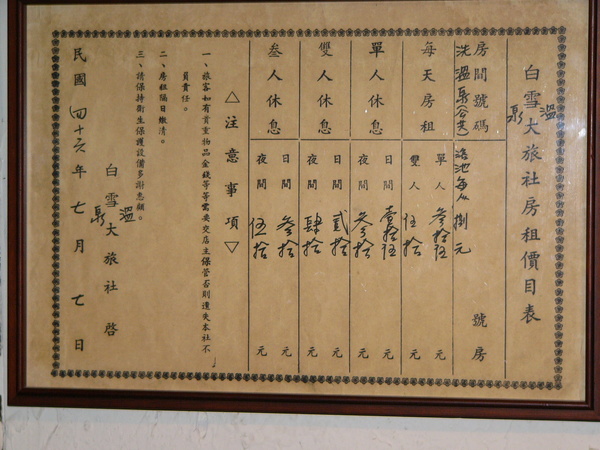 白雪大旅社房租價目表
溫泉
房間號碼 號房
洗溫泉(公共) 浴池每人 捌元
每天房租 單人 叁拾伍元
雙人 伍拾元
單人休息 日間 壹拾伍元
夜間 叁拾元
雙人休息 日間 貳拾元
夜間 肆拾元
叁人休息 日間 叁拾元
夜間 伍拾元
△注意事項▽
一、旅客如有貴重物品金錢等等需要交店主保管否則遺失本社不
負責任。
二、房租隔日繳清。
三、請保持衛生保護設備多謝惠顧。
白雪大旅社 啓
溫泉
民國四十六年七月七日